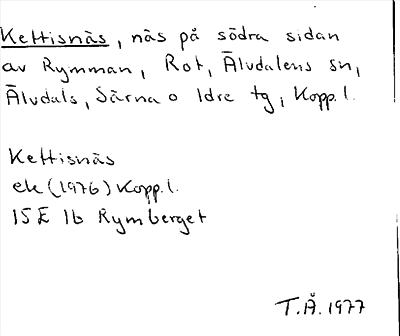 Kettisnäs, näs på södra sidan
av Rymman, Rot, Älvdalens sn,
Älvdals, Särna o Idre tg, Kopp. l.
Kettisnäs
ek (1976) Kopp. l.
15 E 1b Rymberget
T.Å. 1977